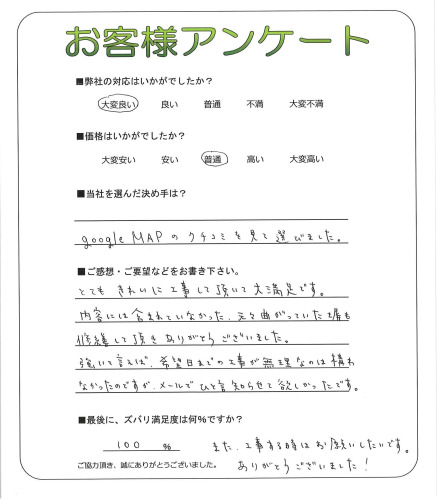 お客様アンケート
■弊社の対応はいかがでしたか？
大変良い 良い 普通 不満 大変不満
■価格はいかがでしたか？
大変安い 安い 普通 高い 大変高い
■当社を選んだ決め手は？
google MAPのクチコミを見て選びました。
■ご感想・ご要望などをお書き下さい。
とてもきれいに工事して頂いて大満足です。
内容には含まれていなかった、元々曲がっていた塀も
修繕して頂きありがとうございました。
強いて言えば、希望日までの工事が無理なのは構わ
なかったのですが、メールでひと言知らせて欲しかったです。
■最後に、ズバリ満足度は何%ですか？
100 %
また、工事する時はお願いしたいです。
ご協力頂き、誠にありがとうございました。
ありがとうございました！